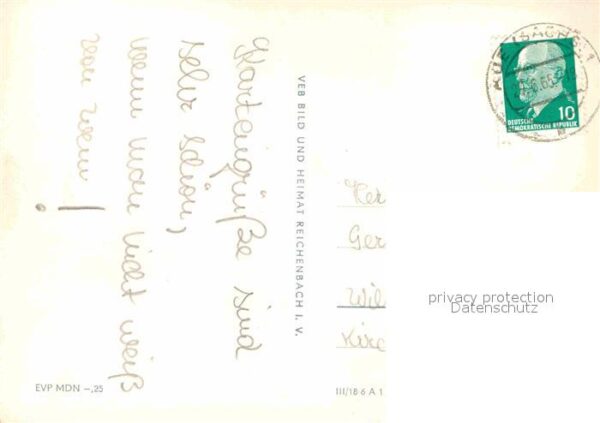 Kartengrüße sind
sehr schön,
wenn man nicht weiß
von wem!
VEB BILD UND HEIMAT REICHENBACH I. V.
EVP MDN –,25
III/18 6 A 1
AUE (SACHS) 1
10
DEUTSCHE
DEMOKRATISCHE REPUBLIK
Ger
Wil
Kirc
privacy protection
Datenschutz